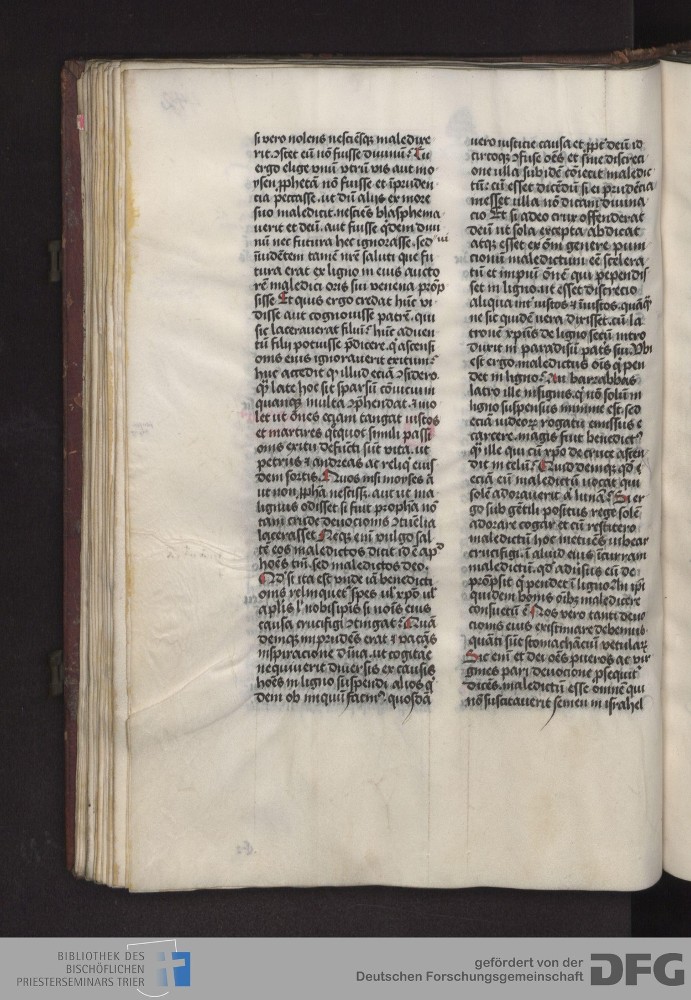 si vero nolens nesciẽsqꝫ maledixe
rit ↄstet eũ nõ fuisse diuinũ. Tu
ergo elige vnũ vtrũ vis aut mo
ysen ꝓphetã nõ fuisse et ĩpruden
cia peccasse. ut dũ alijs ex more
suo maledicit. nesciẽs blasphema
uerit et deũ. aut fuisse q̃dem diui
nũ nec futura hec ignorasse. sed
ĩudẽtem tamẽ nr̃e saluti que fu
tura erat ex ligno in eius aucto
rẽ maledici oris sui venena ꝓmp
sisse Et quis ergo credat hũc vi
disse aut cognouisse patrẽ. qui
sic lacerauerat filiũ? hũc aduen
tũ filij potuisse p̃dicere. qͥ ascensi
onis eius ignorauerit exitum?
huc accedit qͥ illud eciã ↄsidero.
qͣ late hoc sit sparsũ ↄuicium
quamqꝫ multa ↄp̃hendat. ⁊ vio
let ut õnes eciam tangat iustos
et martires qͥtquot simili passi
onis exitu defũcti sũt vita. ut
petrus ⁊ andreas ac reliqͥ eius
dem sortis. Quos nisi moyses a
ut non ꝓphã nescisset. aut ut ma
lignus odisset si fuit propha nõ
tam crude deuocionis ↄtũelia
lacerasset Neqꝫ enĩ vulgo sal
tẽ eos maledictos dicit id ẽ apᵈ
hoĩes tm̃. sed maledictos deo.
Qd̓ si ita est vnde iã benedicti
onis relinquetͬ spes ul̓ xp̃o ul̓
aplis l̓ nobis ipis si nob̃ eius
causa crucifigi ↄtingat? Quã
demqꝫ imprudẽs erat ⁊ vacãs
inspiracione diuia. ut cogitare
nequiuerit diuersis ex causis
hoĩes in ligno suspendi. alios qͥ
dem ob iniquũ facinꝰ. quosdã
uero iusticie causa et ꝓpt̃ deũ id
circoqꝫ ↄfuse oẽs et sine discreci
one ulla sub idẽ cõiecit maledic
tũ? cũ esset dicẽdũ si ei prudẽcia
inesset ulla nõ dicam diuina
cio Et si adeo crux offenderat
deũ ut sola excepta abdicat
atqꝫ esset ex om̃i genere puni
cionũ maledictum eẽ scelera
tũ et impiũ õnẽ qui pependis
set in ligno. ut esset discrecio
aliqua int̓ iustos ⁊ iniustos. quãqͣ
ne sic quidẽ vera dixisset. cũ la
tronẽ xp̃us de ligno secũ intro
duxit in paradisũ patris sui. Vbi
est ergo maledictus õis qͥ pen
det in ligno? An barrabbas
latro ille insignis. qͥ nõ solũ in
ligno suspensus minime est. sed
eciã iudeoꝝ rogatu emissus e
carcere. magis fuit benedictꝰ
qͣ ille qui cũ xp̃o de cruce ascen
dit in celũ? Quid demqꝫ qd̓
eciã eũ maledictũ vocat qui
solẽ adorauerit aut lunã? Si er
go sub gẽtili positus rege solẽ
adorare cogar et cũ restitero
maledictũ hoc metuẽs iubear
crucifigi. ĩ aliud eius ĩcurram
maledictũ. qd̓ adũsus eũ de
prõpsit qͥ pendet ĩ ligno. An ip̃i
quidem bonis õib̾ maledicere
consuetũ ẽ Nos vero tanti deuo
ciones eius existimare debemus
quãti sũt stomachãciũ vetularꝫ
Sic enĩ et dei oẽs pueros ac vir
gines pari deuocione ꝑsequitͬ
dicẽs. maledictũ esse omnẽ qui
nõ suscitauerit semen in israhel
BIBLIOTHEK DES
BISCHÖFLICHEN
PRIESTERSEMINARS TRIER
gefördert von der
Deutschen Forschungsgemeinschaft
DFG